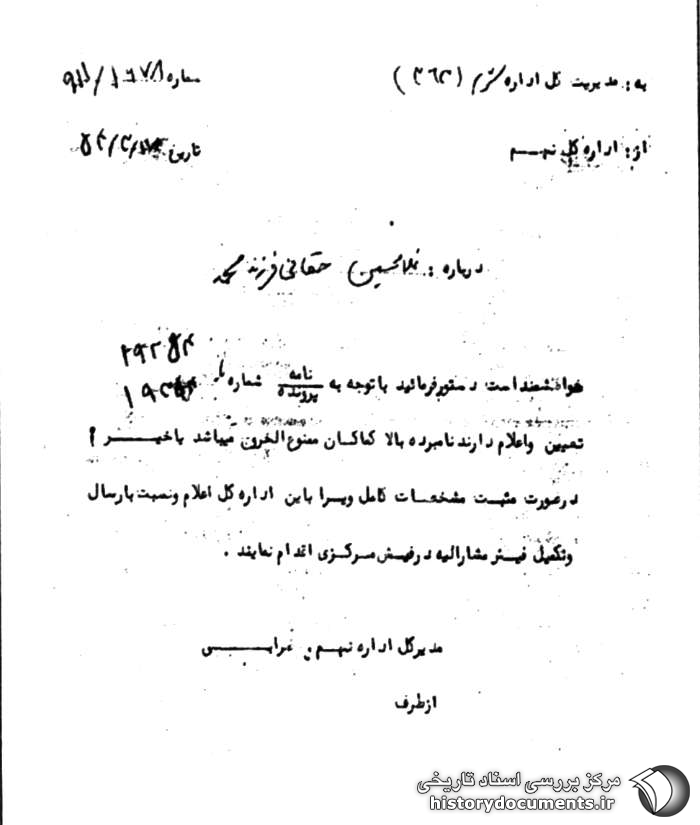 به: مدیریت کل اداره سوم (۳۶۲)
شماره ۹۱۱/۱۶۷۸
از: اداره کل نهـــم
تاریخ
درباره: غلامحسین حقانی فرزند محمد
۲۹۲۵۴
خواهشمند است دستور فرمائید با توجه به نامه / پرونده شماره
تعیین و اعلام دارند نامبرده بالا کماکان ممنوع الخروج میباشد یا خیـــر ؟
در صورت مثبت مشخصات کامل ویرا باین اداره کل اعلام و نسبت بارسال
و تکمیل فیش مشارالیه در فیش مرکزی اقدام نمایند .
مدیر کل اداره نهـم .
از طرف
مرکز بررسی اسناد تاریخی
historydocuments.ir